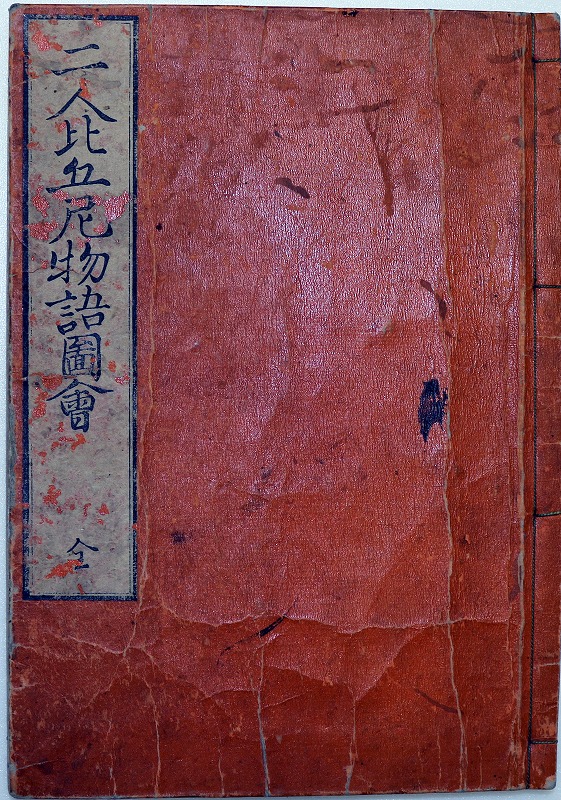 二人比丘尼物語圖會
全